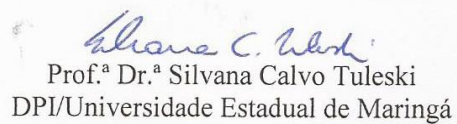 Silvana C. Tuleski
Prof.ª Dr.ª Silvana Calvo Tuleski
DPI/Universidade Estadual de Maringá